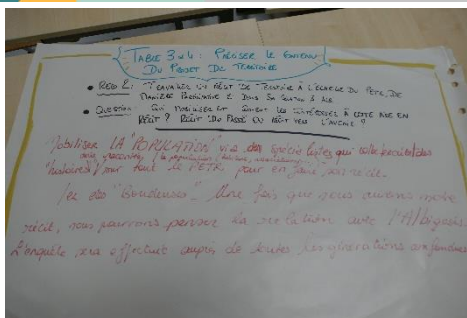 TABLE 3 et 4 : PRÉCISER LE CONTENU
DU PROJET DE TERRITOIRE
• RECO 2 : TRAVAILLER UN RÉCIT DE TERRITOIRE À L'ÉCHELLE DU PETR, DE
MANIÈRE
• QUESTION : QUI MOBILISER ET À CETTE MISE EN
RÉCIT ? RÉCIT DU PASSÉ OU RÉCIT VERS L'AVENIR ?
Mobiliser LA "POPULATION" via des spécialistes qui collecteraient des
"histoires" pour tout le PETR pour en faire son récit.
des "Bondeuses". Une fois que nous aurons notre
récit, nous pourrons penser la relation avec l'Albigeois.
L'enquête sera effectuée auprès de toutes les générations confondues